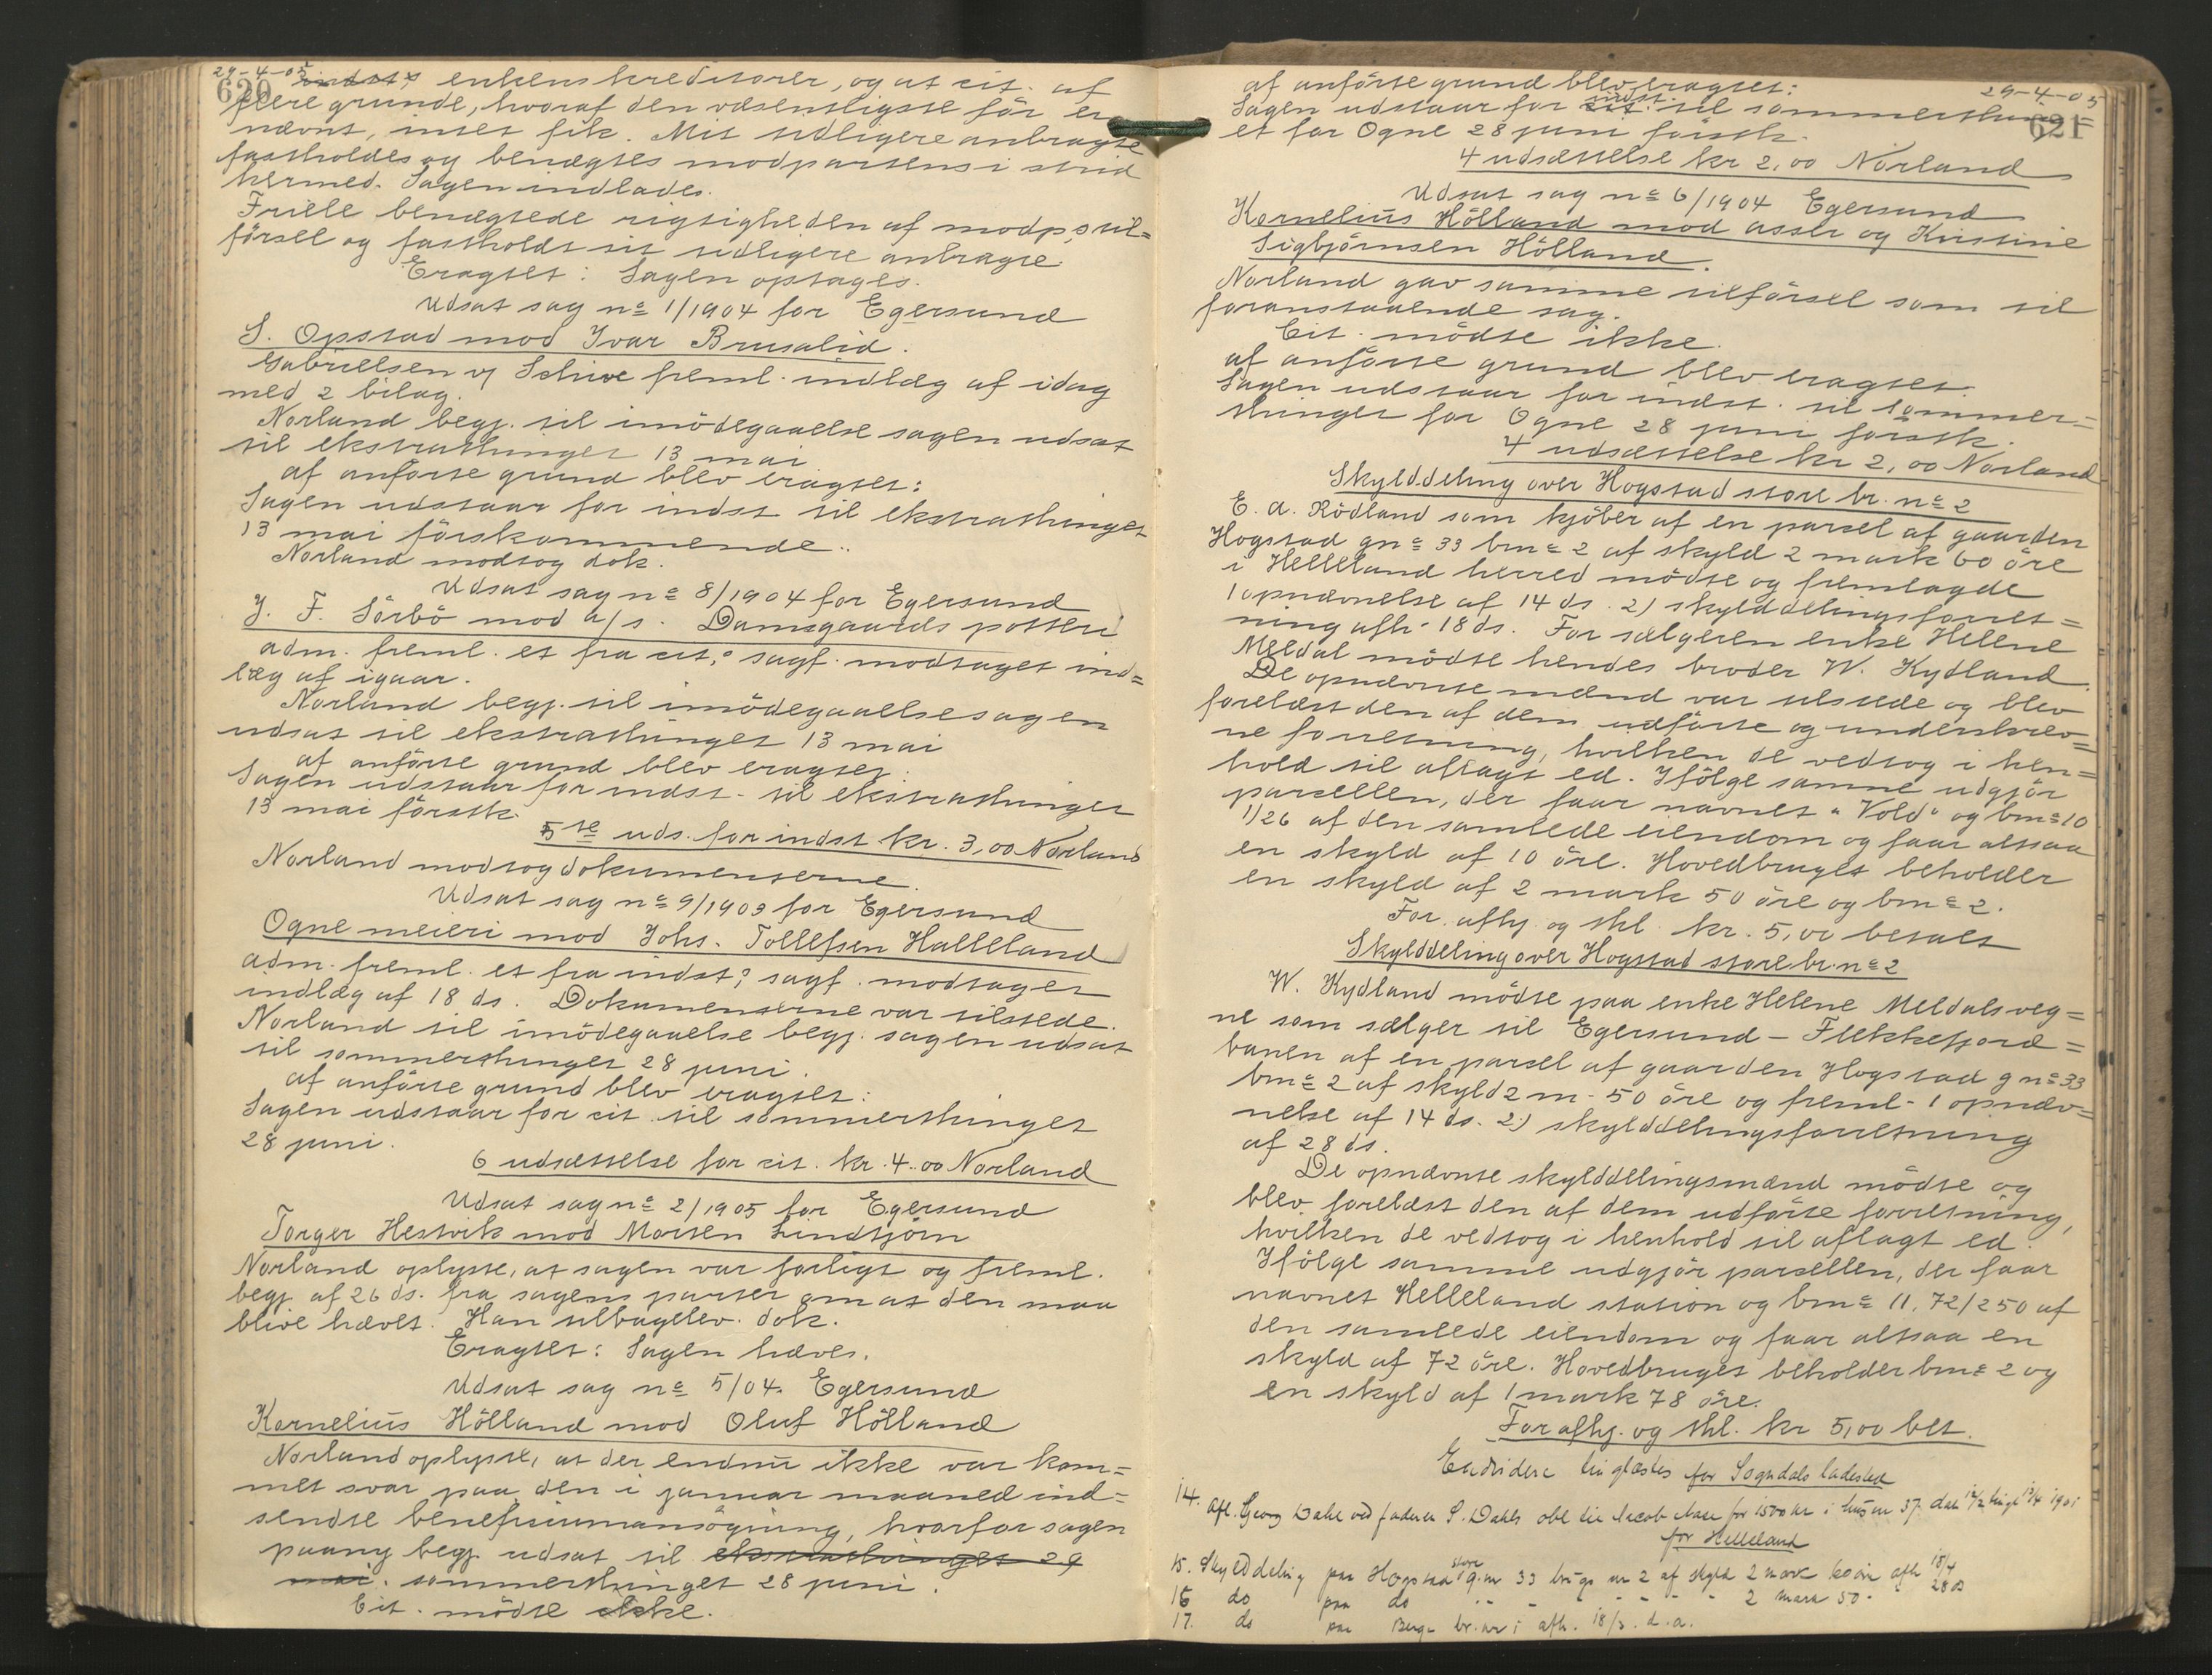 29-4-05
620
indst,s enkens kreditorer, og at cit. af
flere grunde, hvoraf den væsentligste før er
nævnt, intet fik. Mit tidligere anbragte
fastholdes og benægtes modpartens i strid
hermed. Sagen indlades.
Friele benægtede rigtigheden af modp,s til=
førsel og fastholdt sit tidligere anbragte.
Eragtet: Sagen optages.
Udsat sag no 1/1904 for Egersund
S. Opstad mod Ivar Brusalid.
Gabrielsen v/ Schive freml. indlæg af idag
med 2 bilag.
Norland begj. til imødegaaelse sagen udsat
til ekstrathinget 13 mai
af anførte grund blev eragtet:
Sagen udstaar for indst til ekstrathinget
13 mai førskommende..
Norland modtog dok.
Udsat sag no 8/1904 for Egersund
J. F. Sörbö mod a/s. Damsgaards potteri
adm. freml. et fra cit,s sagf. modtaget ind=
læg af igaar.
Norland begj. til imödegaaelse sagen
udsat til ekstrathinget 13 mai
af anførte grund blev eragtet:
Sagen udstaar for indst. til ekstrathinget
13 mai förstk.
5te uds. for indst kr. 3,00 Norland
Norland modtog dokumenterne.
Udsat sag no 9/1903 for Egersund
Ogne meieri mod Johs. Tollefsen Halleland
adm. freml. et fra indst,s sagf. modtaget
indlæg af 18 ds. Dokumenterne var tilstede.
Norland til imödegaaelse begj. sagen udsat
til sommerthinget 28 juni.
af anførte grund blev eragtet:
Sagen udstaar for cit til sommerthinget
28 juni.
6 udsættelse for cit. kr. 4.00 Norland
Udsat sag no 2/1905 for Egersund
Torger Hestvik mod Morten Lindtjörn
Norland oplyste, at sagen var forligt og freml.
begj. af 26 ds. fra sagens parter om at den maa
blive hævet. Han tilbagelev. dok.
Eragtet: Sagen hæves.
Udsat sag no 5/04. Egersund
Kornelius Hölland mod Oluf Hölland
Norland oplyste, at der endnu ikke var kom=
met svar paa den i januar maaned ind=
sendte beneficiumansögning, hvorfor sagen
paany begj. udsat til ekstrathinget 29
mai. sommerthinget 28 juni.
Cit. mödte ikke.
29-4-05
621
af anførte grund blev eragtet:
Sagen udstaar for cit. indst. til sommerthing=
et for Ogne 28 juni förstk.
4 udsættelse kr 2,00 Norland
Udsat sag no 6/1904 Egersund
Kornelius Hölland mod asser og Kristine
Sigbjörnsen Hölland.
Norland gav samme tilförsel som til
foranstaaende sag.
Cit. mödte ikke.
af anförte grund blev eragtet:
Sagen udstaar for indst. til sommer=
thinget for Ogne 28 juni förstk.
4 udsættelse kr 2,00 Norland
Skylddeling over Hogstad store br. no 2
E. A. Rödland som kjöber af en parsel af gaarden
Hogstad gno 33 bno 2 af skyld 2 mark 60 öre
i Helleland herred mödte og fremlagde
1 opnævnelse af 14 ds. 2) skylddelingsforret=
ning afh. 18 ds. For sælgeren enke Helene
Meldal mödte hendes broder W. Kydland.
De opnævnte mænd var tilstede og blev
forelæst den af dem udförte og underskrev=
ne forretning, hvilken de vedtog i hen=
hold til aflagt ed. Ifölge samme udgjör
parsellen, der faar navnet "Vold" og bno 10
1/26 af den samlede eiendom og faar altsaa
en skyld af 10 öre. Hovedbruget beholder
en skyld af 2 mark 50 öre og bno 2.
For. afhj. og thl. kr. 5,00 betalt
Skylddeling over Hogstad store br. no 2
W. Kydland mödte paa enke Helene Meldals veg=
ne som sælger til Egersund - Flekkefjord=
banen af en parsel af gaarden Hogstad gno 33
bno 2 af skyld 2 m. 50 öre og freml. 1 opnæv=
nelse af 14 ds. 2) skylddelingsforretning
af 28 ds.
De opnævnte skylddelingsmænd mödte og
blev forelæst den af dem udförte forretning,
hvilken de vedtog i henhold til aflagt ed.
Ifölge samme udgjör parsellen, der faar
navnet Helleland station og bno 11, 72/250 af
den samlede eiendom og faar altsaa en
skyld af 72 öre. Hovedbruget beholder bno 2 og
en skyld af 1 mark 78 öre.
For afhj. og thl. kr 5,00 bet.
Endvidere tinglæstes for Sogndals ladested
14. Afl. Georg Dahl ved faderen S. Dahls obl til Jacob for 1500 kr i hus nr 37. dat 12/2 tingl 13/4 1901
for Helleland
15. Skylddeling paa Hogstad store g.nr 33 brugs nr 2 af skyld 2 mark 60 öre afh 18/4
16 do paa do " " - - - - 2 mark 50 - " 28 ds
17. do paa Berge br. nr 1 afh. 18/3. d. a.